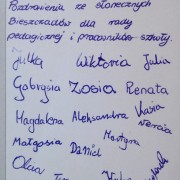 Pozdrowienia ze słonecznych
Bieszczadów dla rady
pedagogicznej i pracowników szkoły.
Julka Wiktoria Julia
Gabrysia Zosia Renata
Magdalena Aleksandra Kasia
Małgosia Daniel Martyna
Oliwia